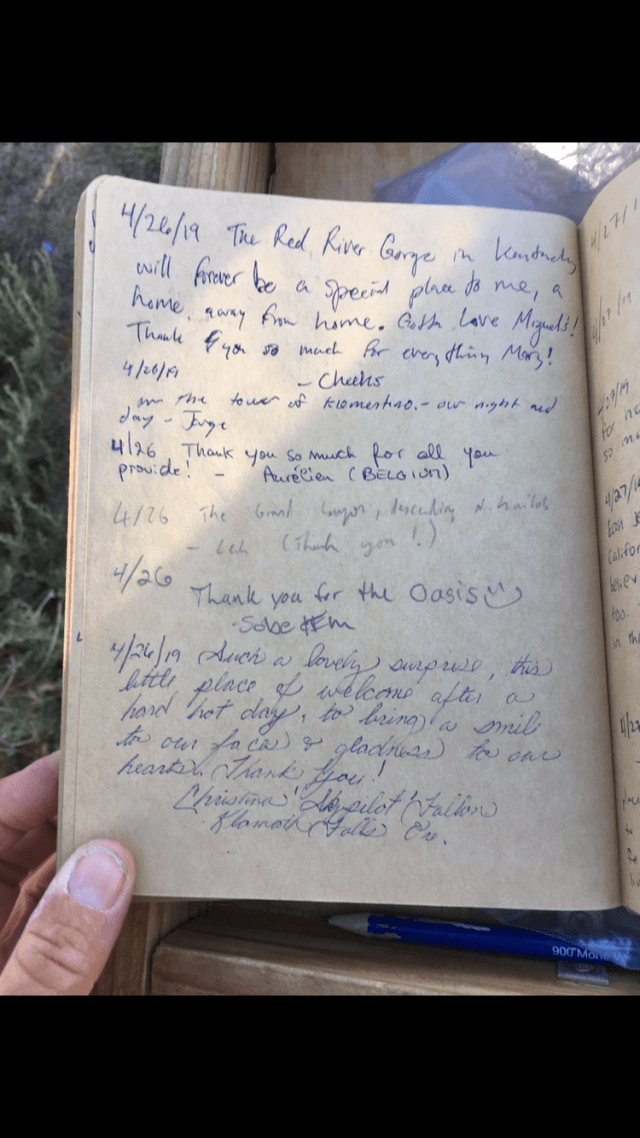 4/26/19 The Red River Gorge in Kentucky
will forever be a special place to me, a
home, away from home. Gotta Love Miguel's!
Thank you so much for everything Mary!
4/26/19 - Cheeks
the tower of - our night and
day - Jorge
4/26 Thank you so much for all you
provide! - Aurélien (BELGIUM)
4/26 The Grand Canyon, descending N.
- (Thank you!)
4/26
Thank you for the Oasis
4/26/19 Such a lovely surprise, this
little place of welcome after a
hard hot day, to bring a smile
to our faces & gladness to our
hearts. Thank you!
Christina 'Skypilot' Fallon
Klamath Falls Ore.
4/27/1
4/27/19
4/29/19
for
so mu
4/27/19
East
Califor
believ
too.
in the
900 Mon